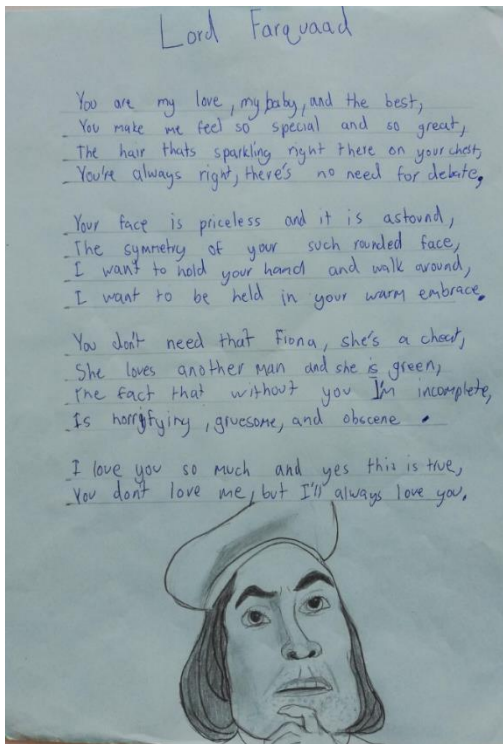 Lord Farquaad
You are my love, my baby, and the best,
You make me feel so special and so great,
The hair thats sparkling right there on your chest,
You're always right, there's no need for debate.
Your face is priceless and it is astound,
The symmetry of your such rounded face,
I want to hold your hand and walk around,
I want to be held in your warm embrace.
You don't need that Fiona, she's a cheat,
She loves another man and she is green,
The fact that without you I'm incomplete,
Is horrifying, gruesome, and obscene.
I love you so much and yes this is true,
You don't love me, but I'll always love you.